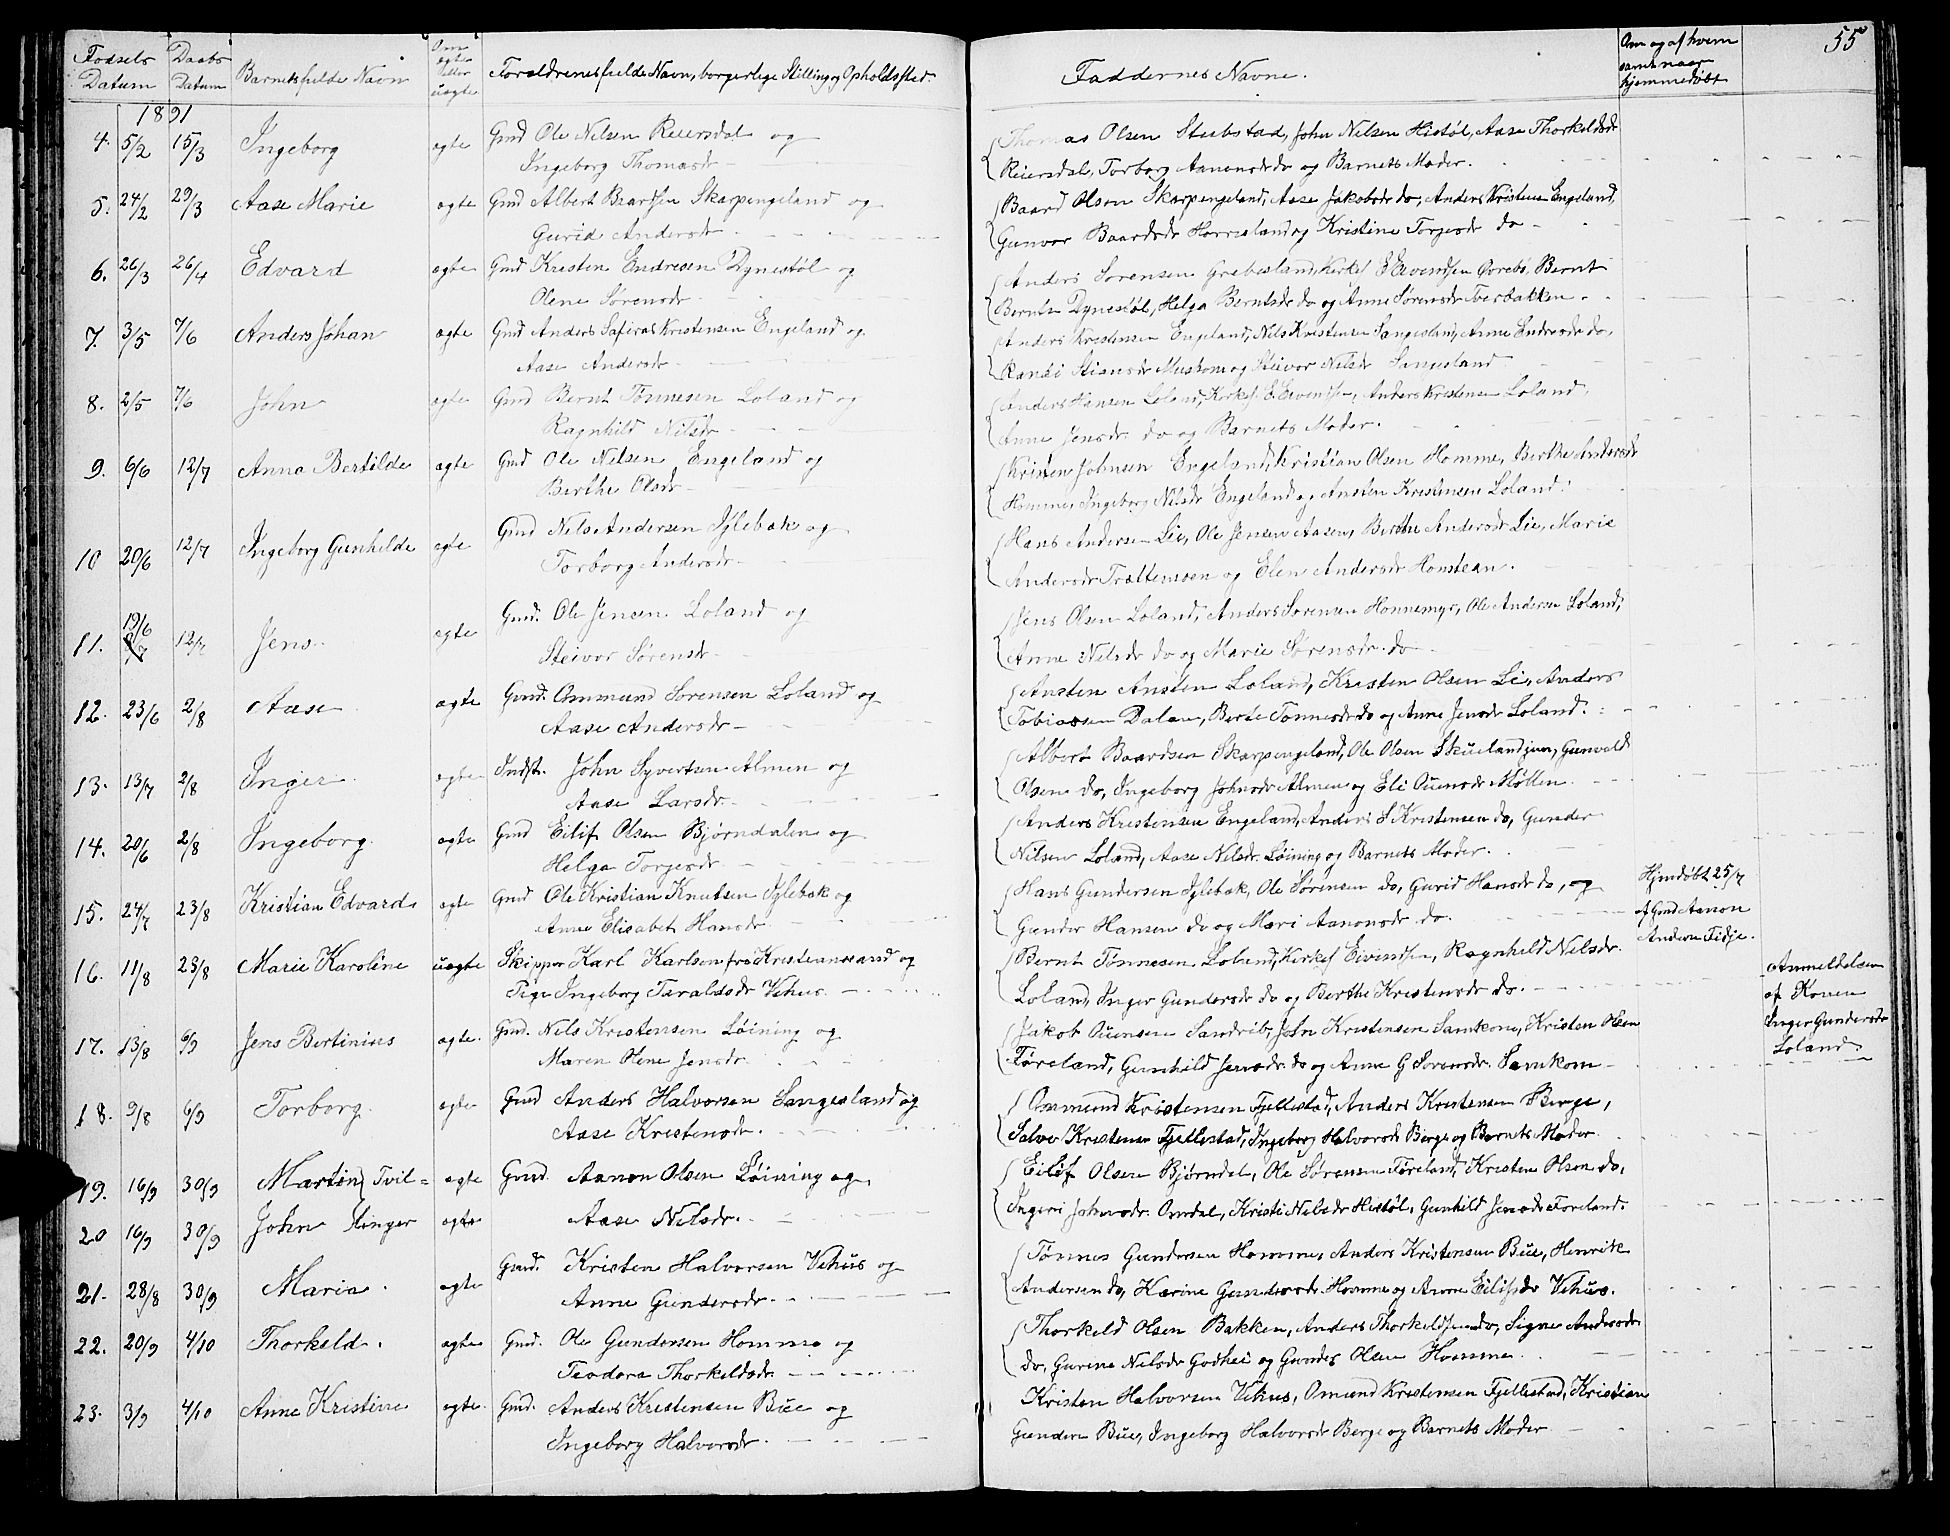 55
Fødsels Datum
Daabs Datum
Barnets fulde Navn
Om ægte eller uægte
Forældrenes fulde Navn, borgerlige Stilling og Opholdssted.
Faddernes Navne.
Om og af hvem samt naar hjemmedøbt
1891
4. 5/2 15/3 Ingeborg ægte Gmd Ole Nilsen Reiersdal og
Ingeborg Thomasdr
Thomas Olsen Stubstad, John Nilsen Histøl, Aase Thorkeldsdr
Reiersdal, Torborg Aanensdr do og Barnets Moder.
5. 24/2 29/3 Aase Marie ægte Gmd Albert Baardsen Skarpengeland og
Gurid Andersdr
Baard Olsen Skarpengeland, Aase Jakobsdr do, Anders Kristensen Engeland,
Gunvor Baardsdr Hørresland og Kristine Torgesdr do
6. 26/3 26/4 Edvard ægte Gmd Kristen Endresen Dynestøl og
Olene Sørensdr
Anders Sørensen Grebesland, Kirkes. E Eivendsen, Bernt
Berntsen Dynestøl, Helga Berntsdr do og Anne Sørensdr Tverbakken.
7. 3/5 7/6 Anders Johan ægte Gmd Anders Safiras Kristensen Engeland og
Aase Andersdr
Anders Kristensen Engeland, Nils Kristensen Sangesland, Anne Endresdr do,
Randi Stiansdr og Steivor Nilsdr Sangesland
8. 2/5 7/6 John ægte Gmd Bernt Tønnesen Loland og
Ragnhild Nilsdr
Anders Hansen Loland, Kirkes. E. Eivendsen, Anders Kristensen Loland,
Anne Jensdr do og Barnets Moder.
9. 6/6 12/7 Anna Bertilde ægte Gmd Ole Nilsen Engeland og
Berthe Olsdr
Kristen Johnsen Engeland, Kristian Olsen Homme, Berthe Andersdr
Homme, Ingeborg Nilsdr Engeland og Ansten Kristensen Loland.
10 20/6 12/7 Ingeborg Gunhilde ægte Gmd Nils Andersen Iglebæk og
Torborg Andersdr
Hans Andersen Lie, Ole Jensen Aasen, Berthe Andersdr Lie, Marie
Andersdr Trættemoen og Elen Andersdr Honstean.
11. 19/6 12/7 Jens ægte Gmd. Ole Jensen Loland og
Steivor Sørensdr
Jens Olsen Loland, Anders Sørensen Honnemyr, Ole Andersen Loland,
Anne Nilsdr do og Marie Sørensdr. do
12. 23/6 2/8 Aase ægte Gmd. Ommund Sørensen Loland og
Aase Andersdr
Ansten Ansten Loland, Kristen Olsen Li, Anders
Tobiassen Dalen, Berte Tønnesdr do og Anne Jensdr Loland.
13. 13/7 2/8 Inger ægte Indst. John Syvertsen Almen og
Aase Larsdr.
Albert Baardsen Skarpengeland, Ole Olsen Skueland jun, Gunvald
Olsen do, Ingeborg Johnsdr Almen og Eli Ouensdr Møllen
14. 20/6 2/8 Ingeborg ægte Gmd Eilif Olsen Bjørndalen og
Helga Torgesdr
Anders Kristensen Engeland, Anders S Kristensen do, Gunder
Nilsen Loland, Aase Nilsdr. Løining og Barnets Moder.
15. 24/7 23/8 Kristian Edvard ægte Gmd Ole Kristian Knutsen Iglebæk og
Anne Elisabet Hansdr
Hans Gundersen Iglebæk, Ole Sørensen do, Gurid Hansdr do, og
Gunder Hansen do og Mari Aanonsdr do.
Hjmdøbt 25/7
af Gmd Aanon
Andersen Fidje.
16. 11/8 23/8 Marie Karoline uægte Skipper Karl Karlsen fra Kristiansand og
Pige Ingeborg Taraldsdr Vehus
Bernt Tønnesen Loland, Kirkes Eivindsen, Ragnhild Nilsdr.
Loland, Inger Gundersdr do og Berthe Kristensdr do.
Anmeldelsen
af Konen
Inger Gundersdr
Loland.
17. 13/8 6/9 Jens Bertinius ægte. Gmd. Nils Kristensen Løining og
Maren Olene Jensdr
Jakob Ouensen Sandrib, John Kristensen Samkom, Kristen Olsen
Føreland, Gunhild Jensdr. do og Anne G Sørensdr. Samkom
18. 9/8 6/9 Torborg. ægte Gmd Anders Halvorsen Sangesland og
Aase Kristensdr.
Ommund Kristensen Fjellestad, Anders Kristensen Berge,
Salve Kristensen Fjellestad, Ingeborg Halvorsdr Berge og Barnets Moder
19. 16/9 30/9 Martin Tvil= ægte Gmd. Aanon Olsen Løining og
Eilif Olsen Bjørndal, Ole Sørensen Føreland, Kristen Olsen do,
20 16/9 30/9 John linger ægte Aase Nilsdr.
Ingeri Johnsdr Omdal, Kristi Nilsdr Histøl, Gunhild Jensdr Føreland.
21. 28/8 30/9 Maria. ægte Gmd. Kristen Halvorsen Vehus og
Anne Gundersdr.
Tønnes Gundersen Homme, Anders Kristensen Bue, Henrik
Andersen do, Karine Gundersdr. Homme og Anne Eilifsdr Vehus.
22. 20/9 4/10 Thorkeld. ægte Gmd. Ole Gundersen Homme og
Teodora Thorkeldsdr.
Thorkeld Olsen Bakken, Anders Thorkeldsen do, Signe Andersdr
do, Gurine Nilsdr Godhei og Gunder Olsen Homme.
23. 3/9 4/10 Anne Kristine ægte. Gmd. Anders Kristensen Bue og
Ingeborg Halvorsdr.
Kristen Halvorsen Vehus, Omund Kristensen Fjellestad, Kristian
Gundersen Bue, Ingeborg Halvorsdr Berge og Barnets Moder